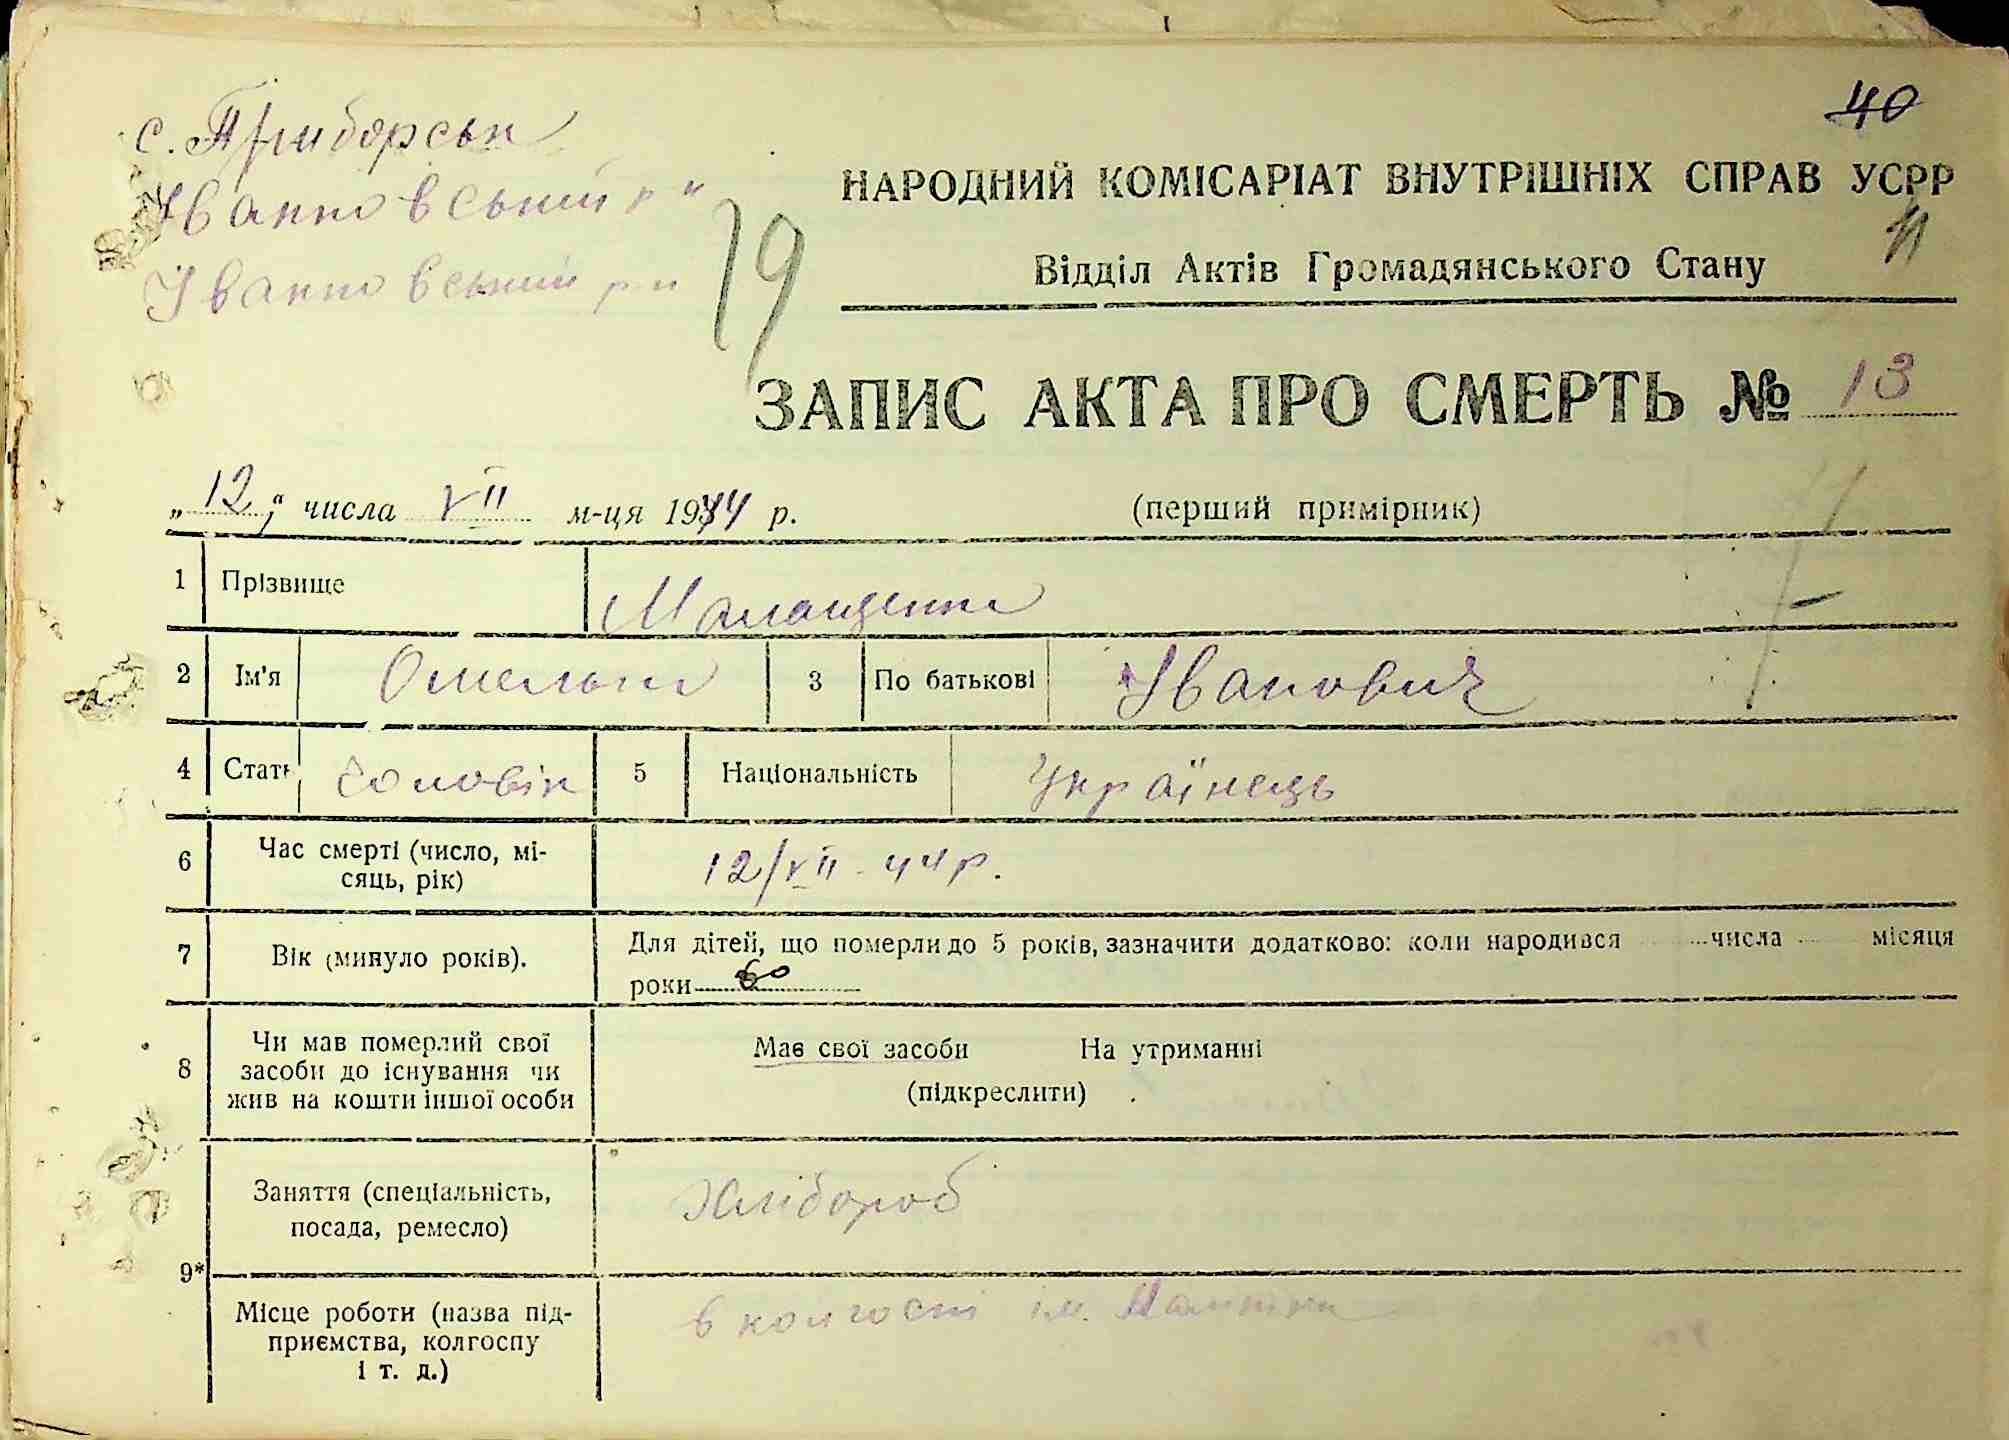 40
с. Приборськ
НАРОДНИЙ КОМІСАРІАТ ВНУТРІШНІХ СПРАВ УСРР
Іванковський р-н
11
19
Відділ Актів Громадянського Стану
Іванковський р-н
ЗАПИС АКТА ПРО СМЕРТЬ № 13
„12“ числа VII м-ця 1944 р. (перший примірник)
1 Прізвище Малащенко
2 Ім'я Омелько 3 По батькові Іванович
4 Стать чоловік 5 Національність Українець
6 Час смерті (число, мі-
сяць, рік) 12/VII-44 р.
7 Вік (минуло років). Для дітей, що померли до 5 років, зазначити додатково: коли народився числа місяця
роки 60
8 Чи мав померлий свої
засоби до існування чи
жив на кошти іншої особи
Має свої засоби На утриманні
(підкреслити)
9*
Заняття (спеціальність,
посада, ремесло) Хлібороб
Місце роботи (назва під-
приємства, колгоспу
і т. д.)
в колгоспі ім.